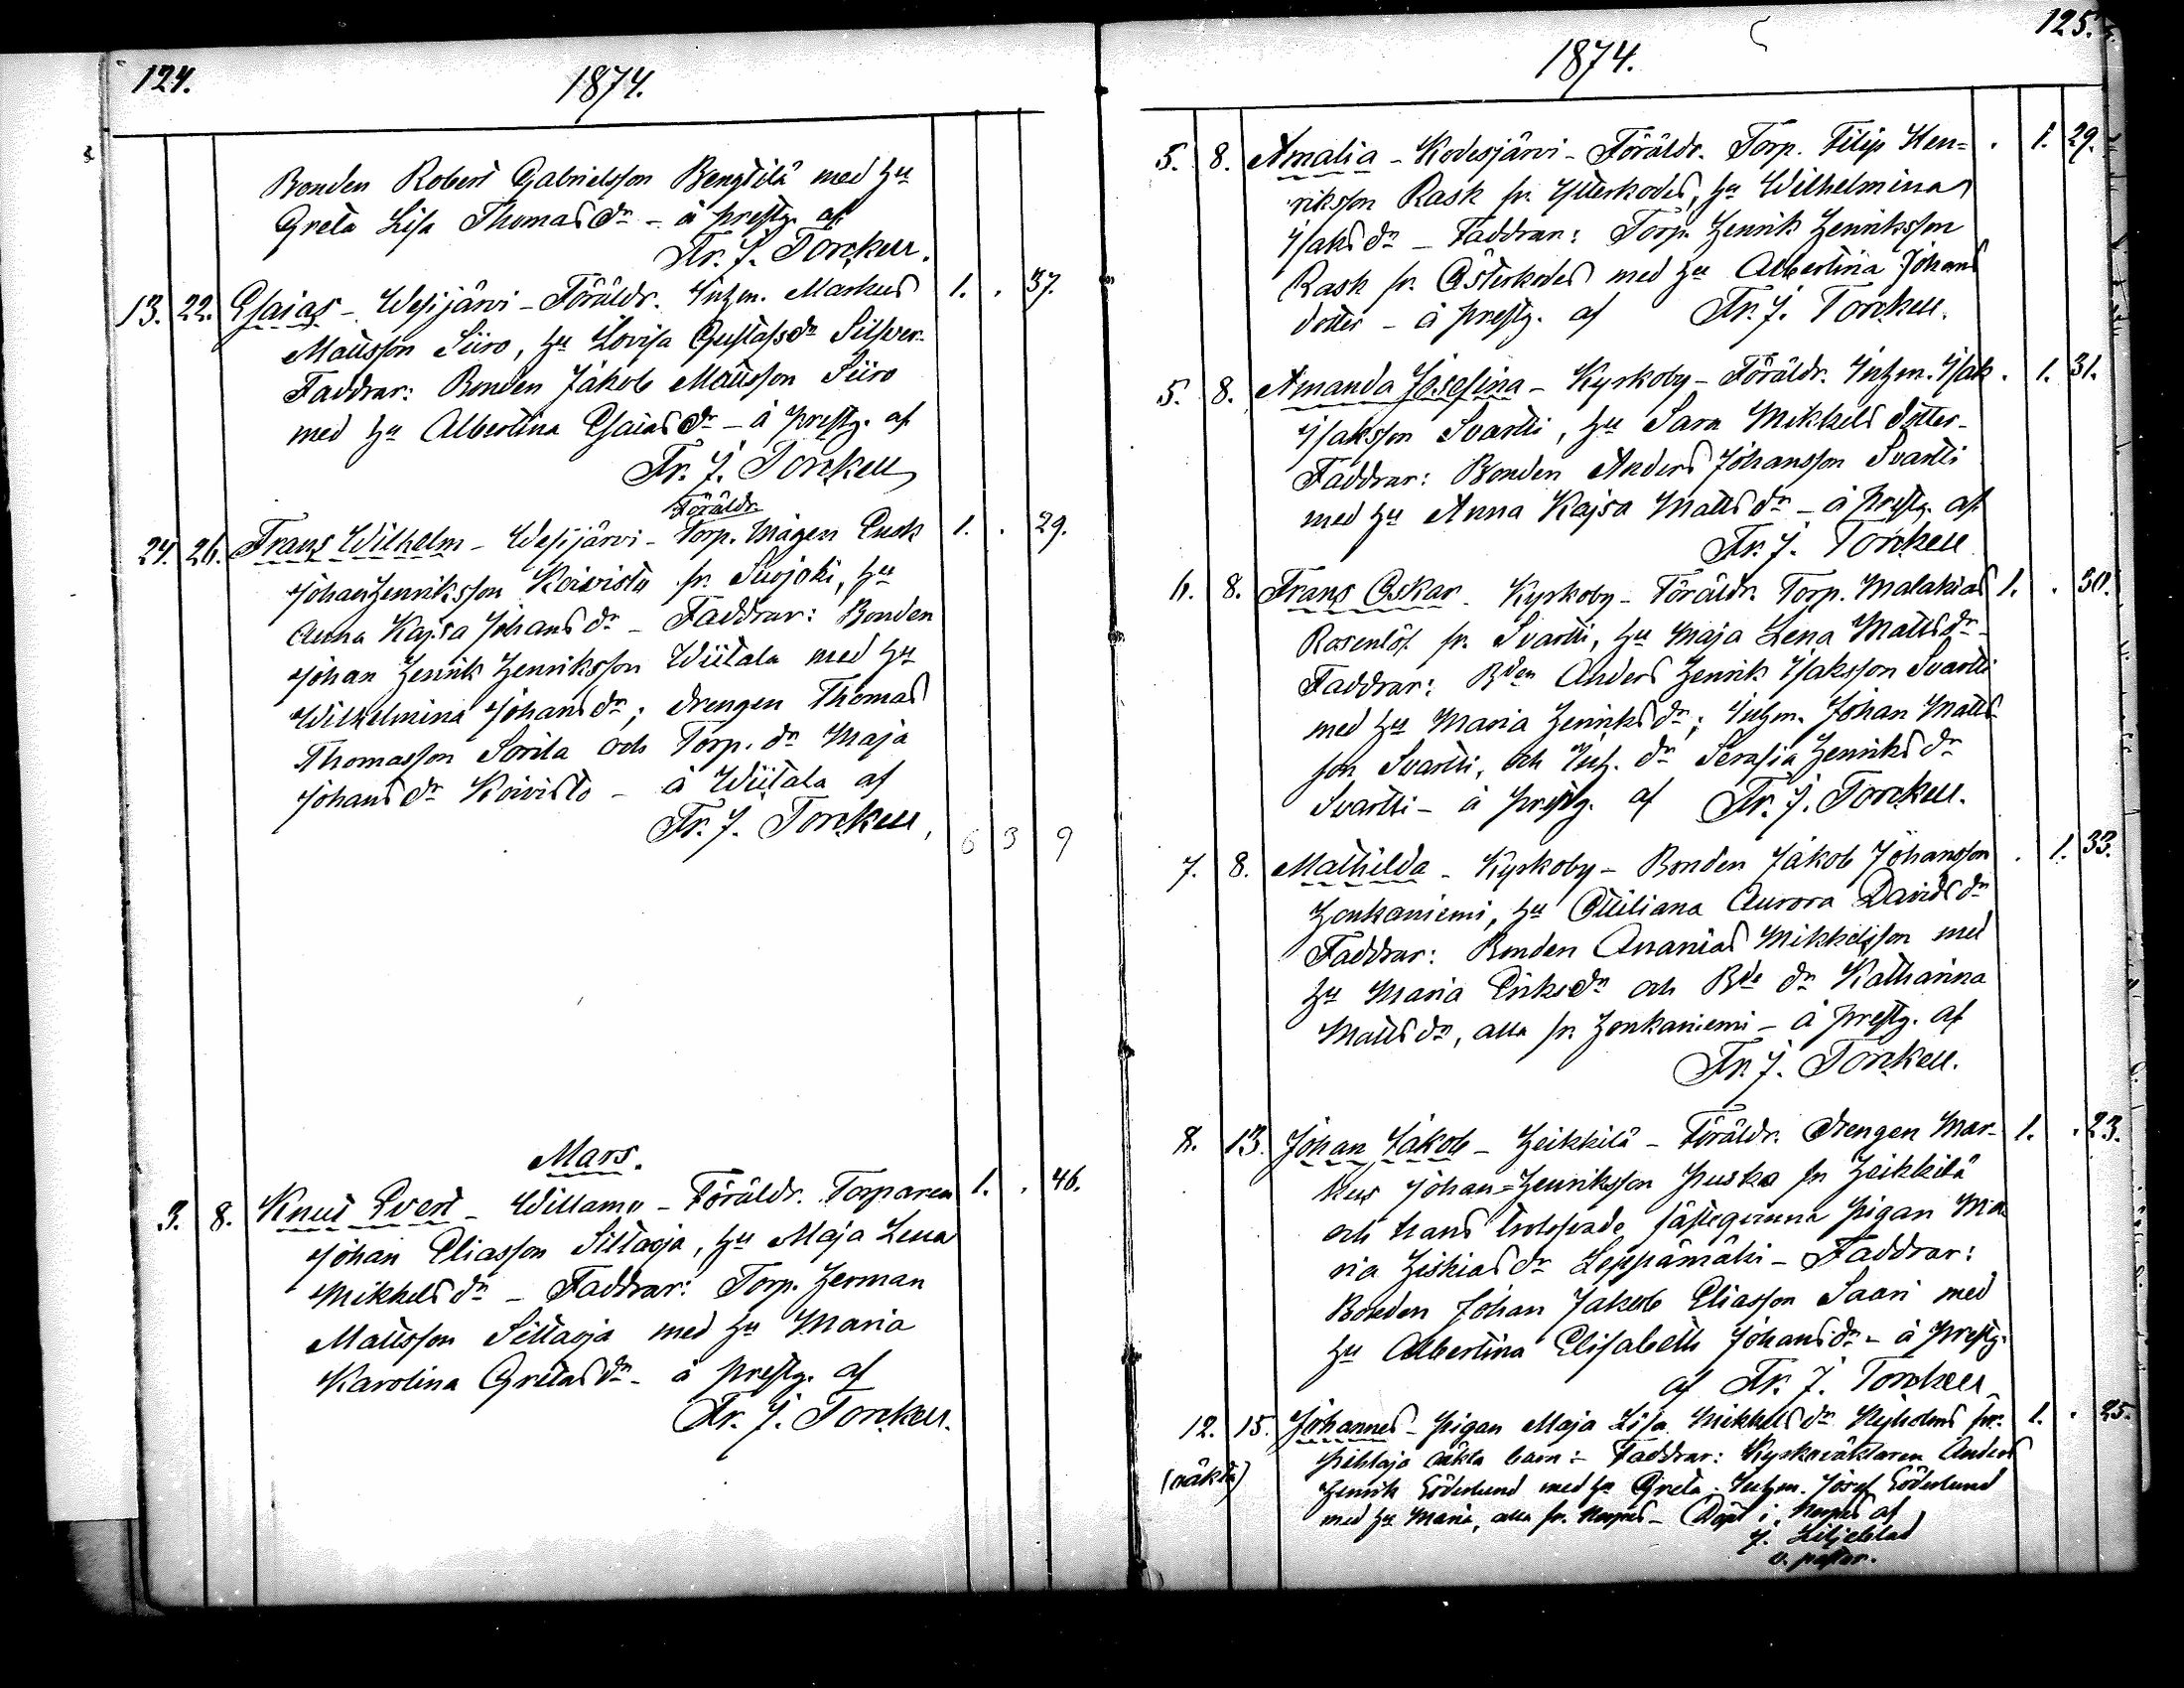 124.
1874.
Bonden Robert Gabrielsson Bengtilä med hu
Greta Lisa Thomasdr - å prestg. af
Fr. J. Torckell.
13. 22. Esaias - Wesijärvi - Föräldr. Inhm. Markus 1. . 37.
Mattsson Siiro, hu Lovisa Gustafsdr Silfver-
Faddrar: Bonden Jakob Mattsson Siiro
med hu Albertina Esaiasdr - å prestg. af
Fr. J. Torckell
Föräldr.
24. 26. Frans Wilhelm - Wesijärvi - Torp. mågen Enok 1. . 29.
Johan Henriksson Koivisto fr. Suojoki, hu
Anna Kajsa Johansdr - Faddrar: Bonden
Johan Henrik Henriksson Wiitala med hu
Wilhelmina Johansdr; drengen Thomas
Thomasson Sorila och Torp. dr Maja
Johansdr Koivisto - å Wiitala af
Fr. J. Torckell,
6 3 9
Mars.
3. 8. Knut Evert - Willamo - Föräldr. Torparen 1. . 46.
Johan Eliasson Siltaoja, hu Maja Lena
Mikkelsdr - Faddrar: Torp. Herman
Mattsson Siltaoja med hu Maria
Karolina Gretasdr - å prestg. af
Fr. J. Torckell.
125.
1874.
5. 8. Amalia - Kodesjärvi - Föräldr. Torp. Filip Hen= . 1. 29.
riksson Rask fr. Ytterkodes, hu Wilhelmina
Isaksdr - Faddrar: Torp. Henrik Henriksson
Rask fr. Österkodes med hu Albertina Johans
dotter - å prestg. af Fr. J. Torckell.
5. 8. Amanda Josefina - Kyrkoby - Föräldr. Inhm. Isak . 1. 31.
Isaksson Svartti, hu Sara Mikkels dotter -
Faddrar: Bonden Anders Johansson Svartti
med hu Anna Kajsa Mattsdr - å prestg. af
Fr. J. Torckell
6. 8. Frans Oskar - Kyrkoby - Föräldr. Torp. Malakias 1. . 50.
Rosenlöf fr. Svartti, hu Maja Lena Mattsdr -
Faddrar: Bden Anders Henrik Isaksson Svartti
med hu Maria Henriksdr; Inhm. Johan Matts
son Svartti, och Inh. dr Serafia Henriksdr
Svartti - å prestg. af Fr. J. Torckell.
7. 8. Mathilda - Kyrkoby - Bonden Jakob Johansson . 1. 33.
Honkaniemi, hu Ottiliana Aurora Davidsdr
Faddrar: Bonden Ananias Mikkelsson med
hu Maria Eriksdr och Bde dr Katharina
Mattsdr, alla fr. Honkaniemi - å prestg. af
Fr. J. Torckell.
8. 13. Johan Jakob - Heikkilä - Föräldr. Drengen Mar- 1. . 23.
kus Johan=Henriksson Puska fr Heikkilä
och hans trolofvade fästeqvinna pigan Ma
ria Hiskiasdr Leppämäki - Faddrar:
Bonden Johan Jakob Eliasson Saari med
hu Albertina Elisabeth Johansdr - å prestg.
af Fr. J. Torckell
12. 15. Johannes - Pigan Maja Lisa Mikkelsdr Nyholms fr. 1. . 25.
(oäkta) Pihlaja oäkta barn - Faddrar: Kyrkoväktaren Anders
Henrik Söderlund med hu Greta. Inhm. Josef Söderlund
med hu Maria, alla fr. Nerpes - Döpt i Nerpes af
J. Liljeblad
v. pastor.